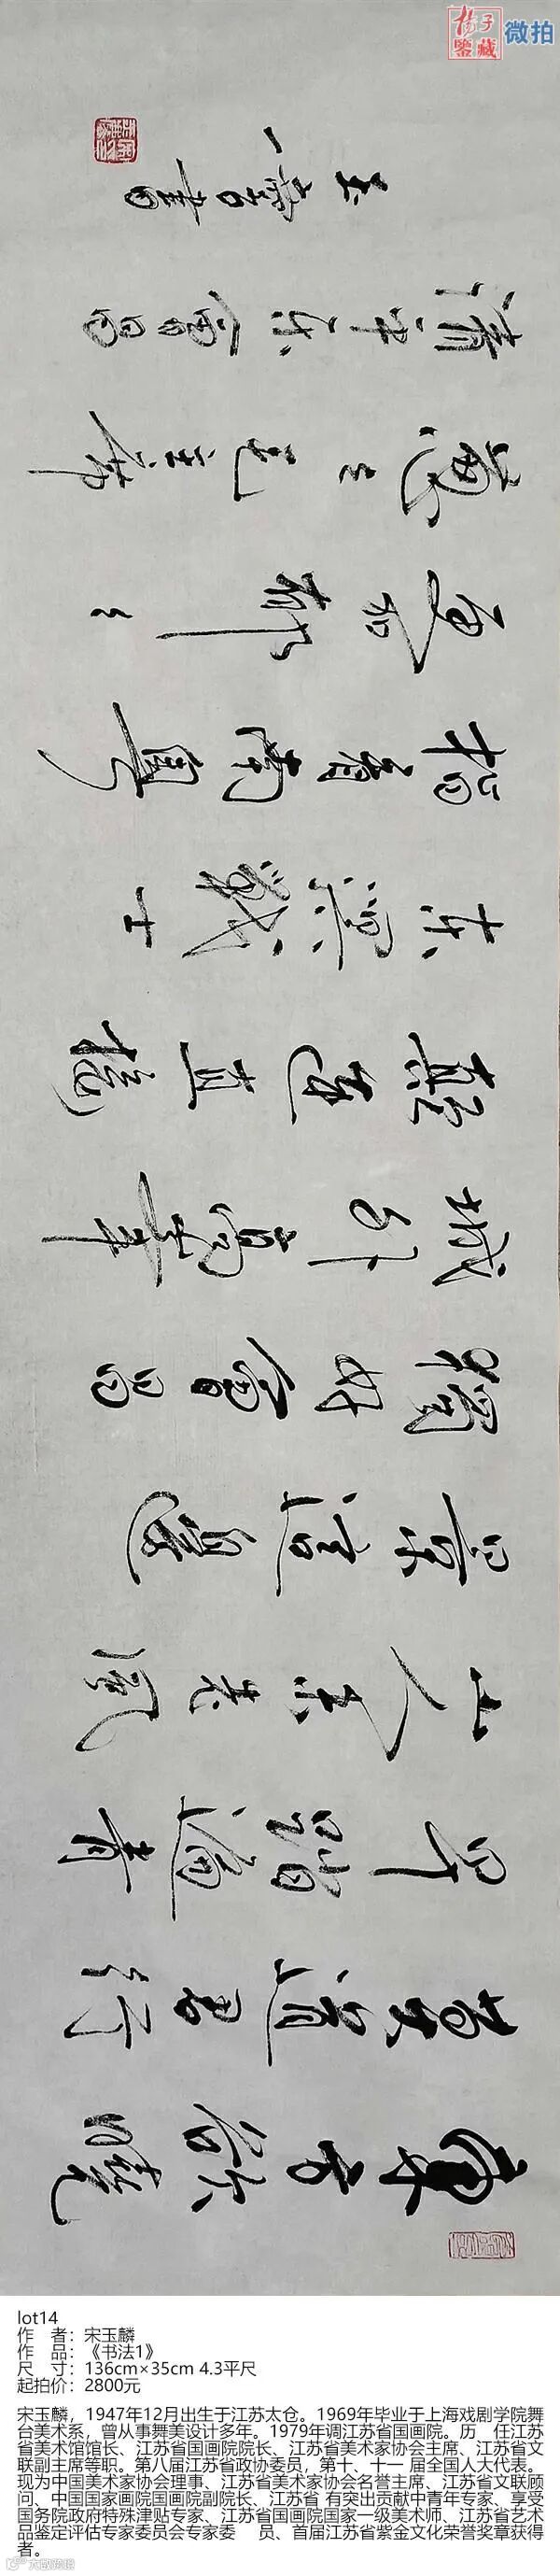 扬子
鉴藏
微拍
東方欲曉
莫道君行
早踏遍青
山人未老風
景這邊
獨好會昌
城外高峯
顛連直接
東溟戰士
指看南粵
更加郁々
蔥々毛主席
清平樂會昌
lot14
作 者：宋玉麟
作 品：《书法1》
尺 寸：136cm×35cm 4.3平尺
起拍价：2800元
宋玉麟，1947年12月出生于江苏太仓。1969年毕业于上海戏剧学院舞
台美术系，曾从事舞美设计多年。1979年调江苏省国画院。历 任江苏
省美术馆馆长、江苏省国画院院长、江苏省美术家协会主席、江苏省文
联副主席等职。第八届江苏省政协委员，第十、十一 届全国人大代表。
现为中国美术家协会理事、江苏省美术家协会名誉主席、江苏省文联顾
问、中国国家画院国画院副院长、江苏省 有突出贡献中青年专家、享受
国务院政府特殊津贴专家、江苏省国画院国家一级美术师、江苏省艺术
品鉴定评估专家委员会专家委 员、首届江苏省紫金文化荣誉奖章获得
者。